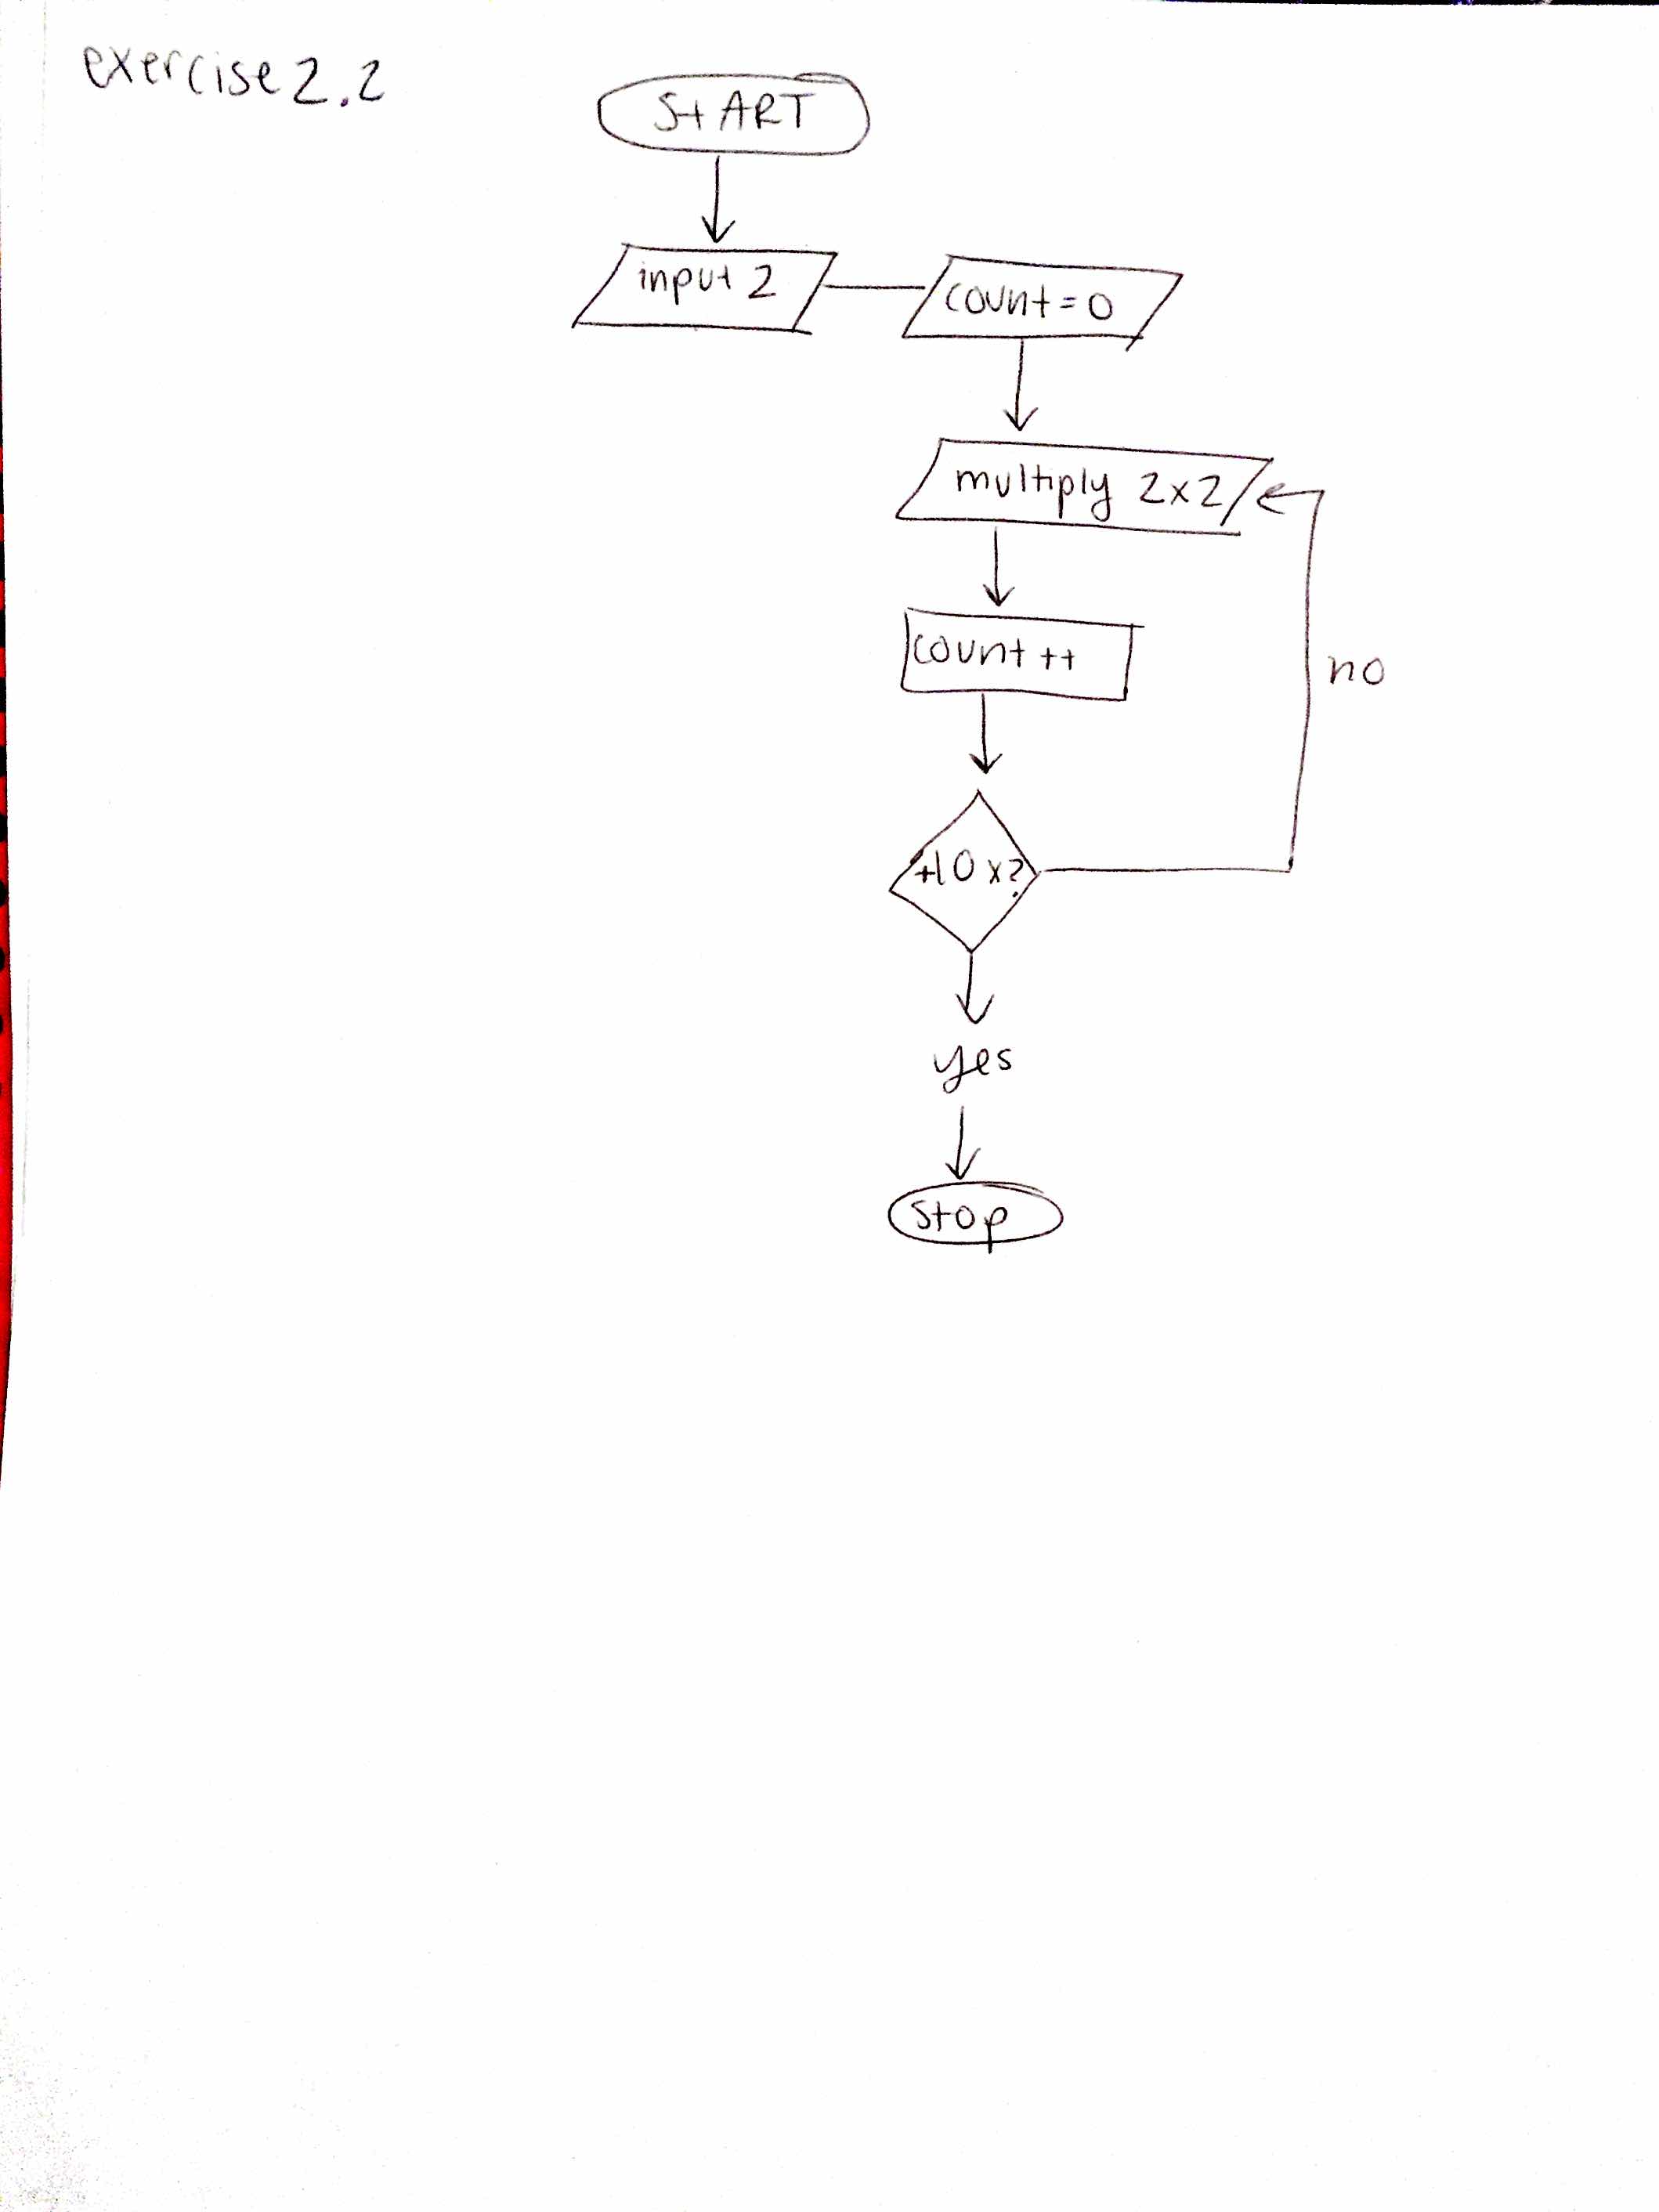 exercise 2.2
StART
input 2
count = 0
multiply 2x2
count ++
no
+10 x?
yes
stop